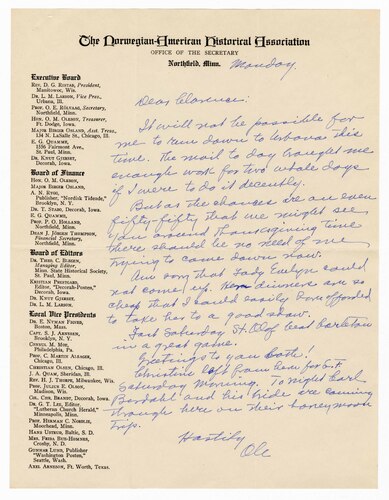 The Norwegian-American Historical Association
OFFICE OF THE SECRETARY
Northfield, Minn.
Monday
Executive Board
REV. D. G. RISTAD, President,
Manitowoc, Wis.
DR. L. M. LARSON, Vice Pres.,
Urbana, Ill.
PROF. O. E. ROLVAAG, Secretary,
Northfield, Minn.
HON. O. M. OLESON, Treasurer,
Ft. Dodge, Iowa.
MAJOR BIRGER OSLAND, Asst. Treas.,
134 N. LaSalle St., Chicago, Ill.
E. G. QUAMME,
1596 Fairmont Ave.,
St. Paul, Minn.
DR. KNUT GJERSET,
Decorah, Iowa.
Board of Finance
HON. O. M. OLESON,
MAJOR BIRGER OSLAND,
A. N. RYGG,
Publisher, "Nordisk Tidende,"
Brooklyn, N. Y.
DR. T. STABO, Decorah, Iowa.
E. G. QUAMME,
PROF. P. O. HOLLAND,
Northfield, Minn.
DEAN J. JÖRGEN THOMPSON,
Financial Secretary,
Northfield, Minn.
Board of Editors
DR. THEO. C. BLEGEN,
Managing Editor,
Minn. State Historical Society,
St. Paul, Minn.
KRISTIAN PRESTGARD,
Editor, "Decorah-Posten,"
Decorah, Iowa.
DR. KNUT GJERSET,
DR. L. M. LARSON,
Local Vice Presidents
DR. E. NYMAN FIGVED,
Boston, Mass.
CAPT. S. J. ARNESEN,
Brooklyn, N. Y.
CONSUL M. MOE,
Philadelphia, Pa.
PROF. C. MARTIN ALSAGER,
Chicago, Ill.
CHRISTIAN OLSEN, Chicago, Ill.
J. A. QUAM, Sheridan, Ill.
REV. H. J. THORPE, Milwaukee, Wis.
PROF. JULIUS E. OLSON,
Madison, Wis.
COL. CHR. BRANDT, Decorah, Iowa.
DR. G. T. LEE, Editor
"Lutheran Church Herald,"
Minneapolis, Minn.
PROF. HERMAN C. NORDLIE,
Moorhead, Minn.
HANS USTRUD, Baltic, S. D.
MRS. FRIDA BUE-HOMNES,
Crosby, N. D.
GUNNAR LUND, Publisher
"Washington Posten,"
Seattle, Wash.
AXEL ARNESON, Ft. Worth, Texas.
Dear Clarence:
It will not be possible for
me to run down to Urbana this
time. The mail to day brought me
enough work for two whole days
if I were to do it decently.
But as the chances are an even
fifty-fifty, that we might see
you around Thanksgiving time
there should be no need of me
trying to come down now.
Am sorry that Lady Evelyn could
not come up. dinners are so
cheap that I could easily have afforded
to take her to a good show.
Last Saturday St. Olaf beat Carleton
in a great game.
Greetings to you both!
Christin left from here for
Saturday Morning. Tonight Carl
and his bride are coming
through here on their honeymoon
trip.
Hastily
Ole